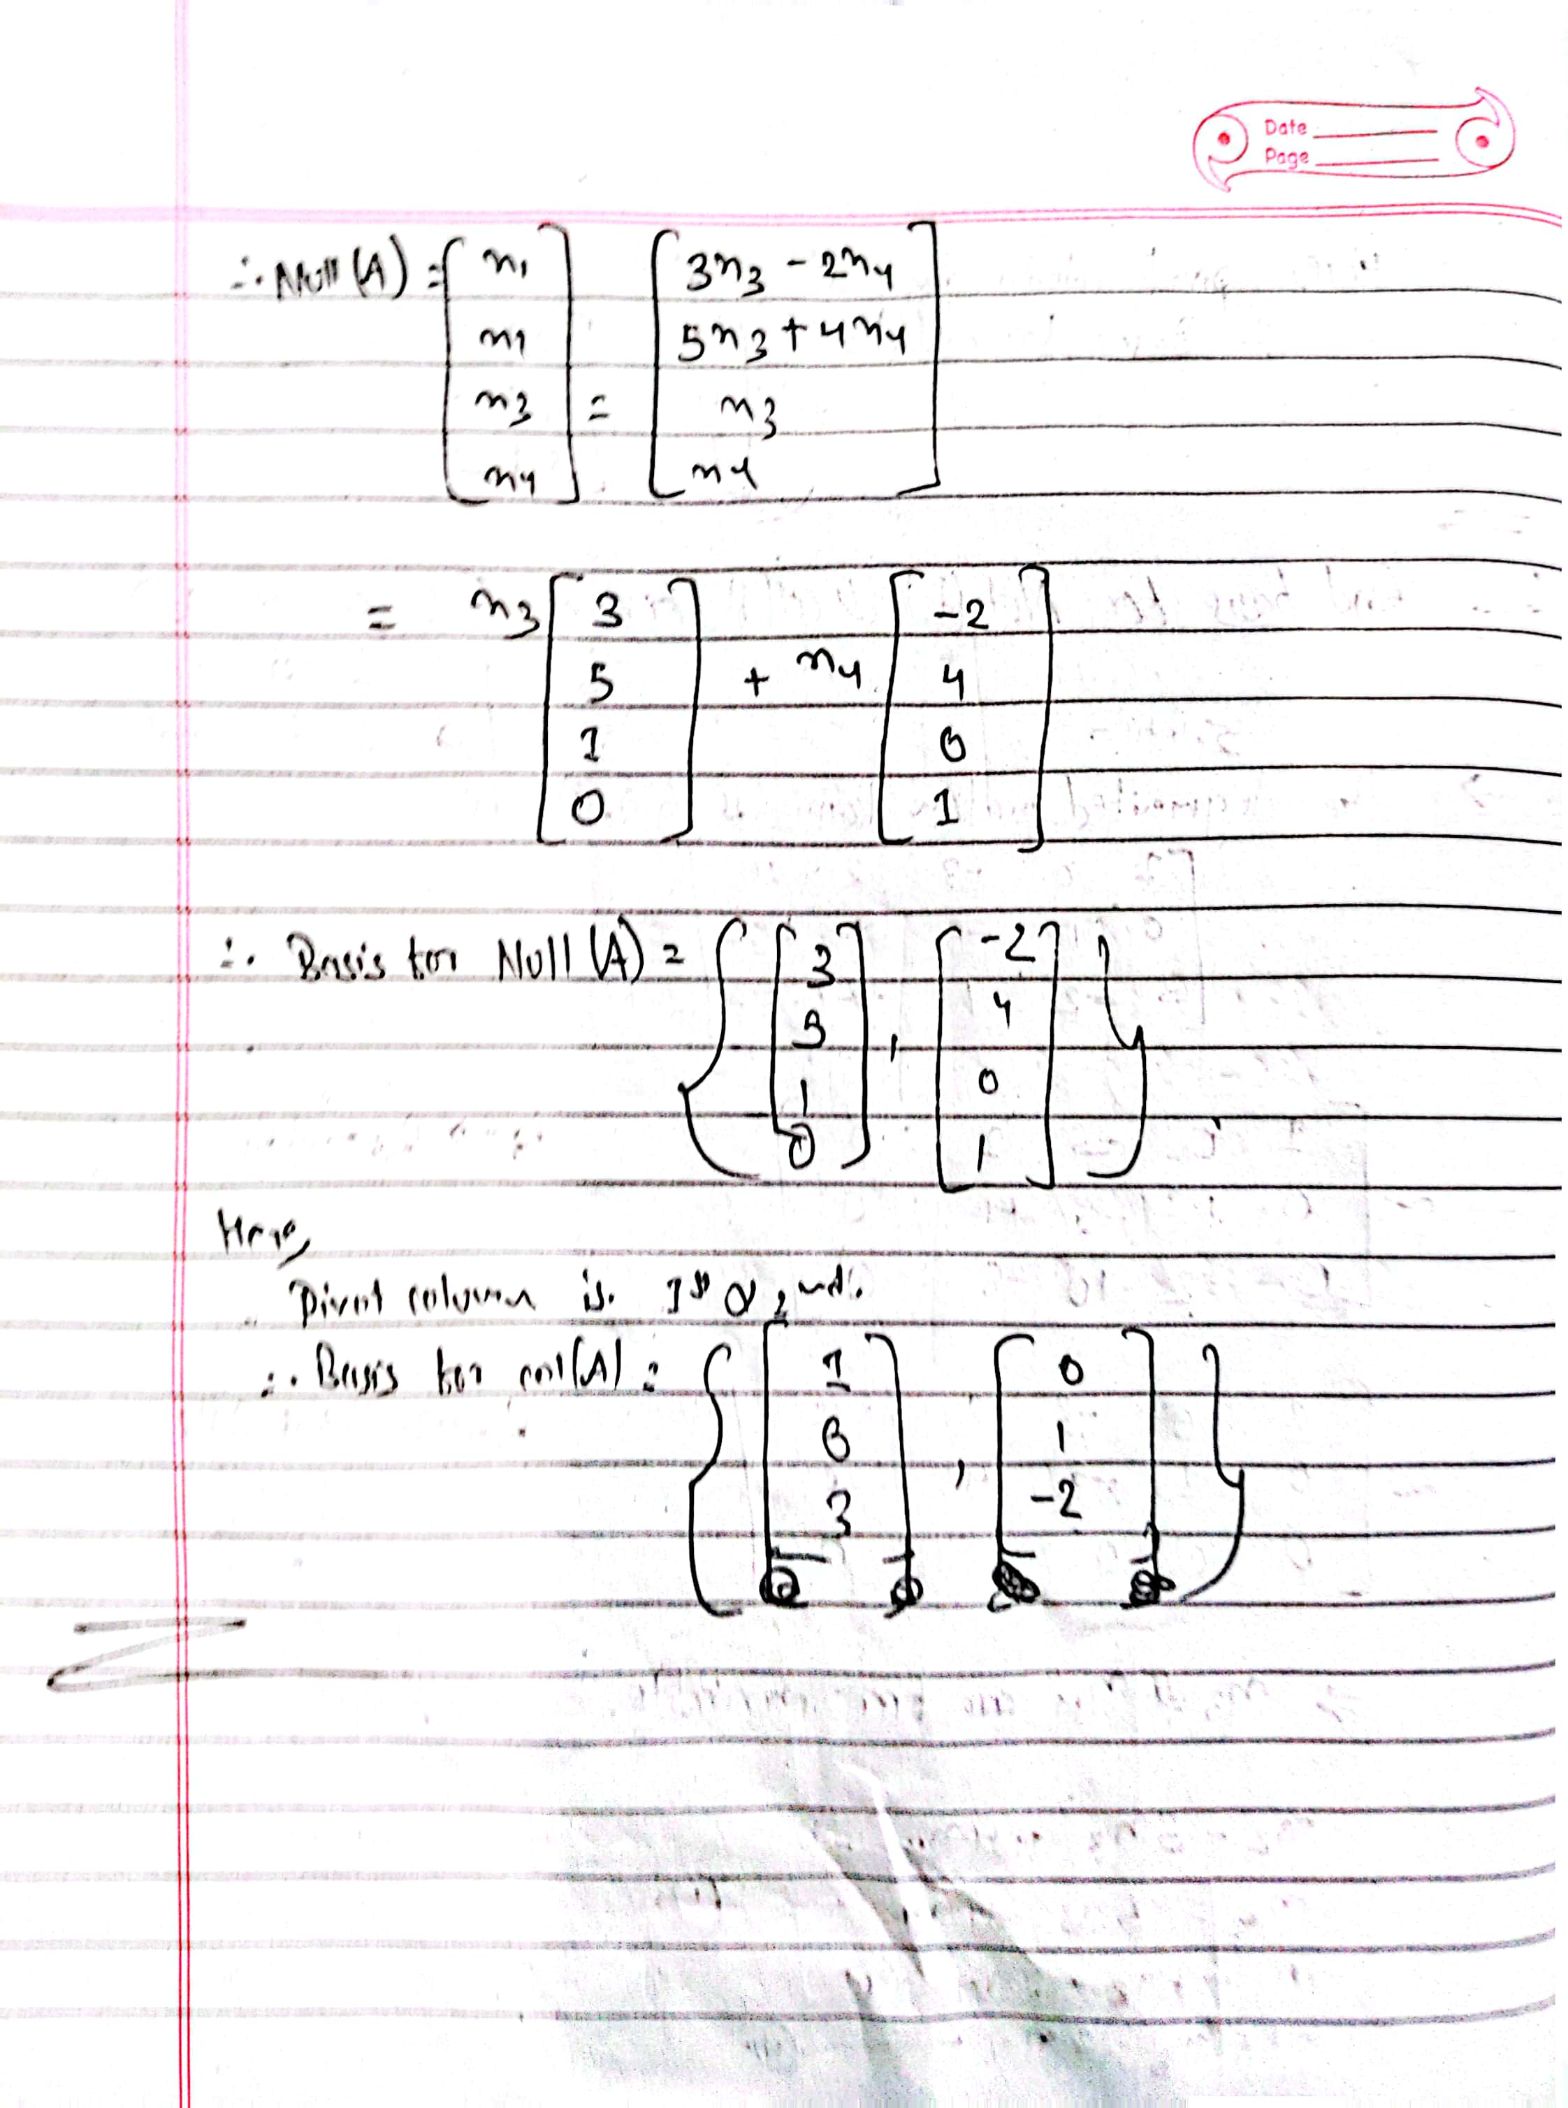 Date
Page
∴ Null (A) = [ x₁ x₁ x₃ x₄ ] = [ 3x₃ - 2x₄ 5x₃ + 4x₄ x₃ x₄ ]
= x₃ [ 3 5 1 0 ] + x₄ [ -2 4 0 1 ]
∴ Basis for Null (A) = { [ 3 5 1 0 ] , [ -2 4 0 1 ] }
Here,
Pivot column is 1st & 2nd.
∴ Basis for col(A) = { [ 1 0 3 ] , [ 0 1 -2 ] }